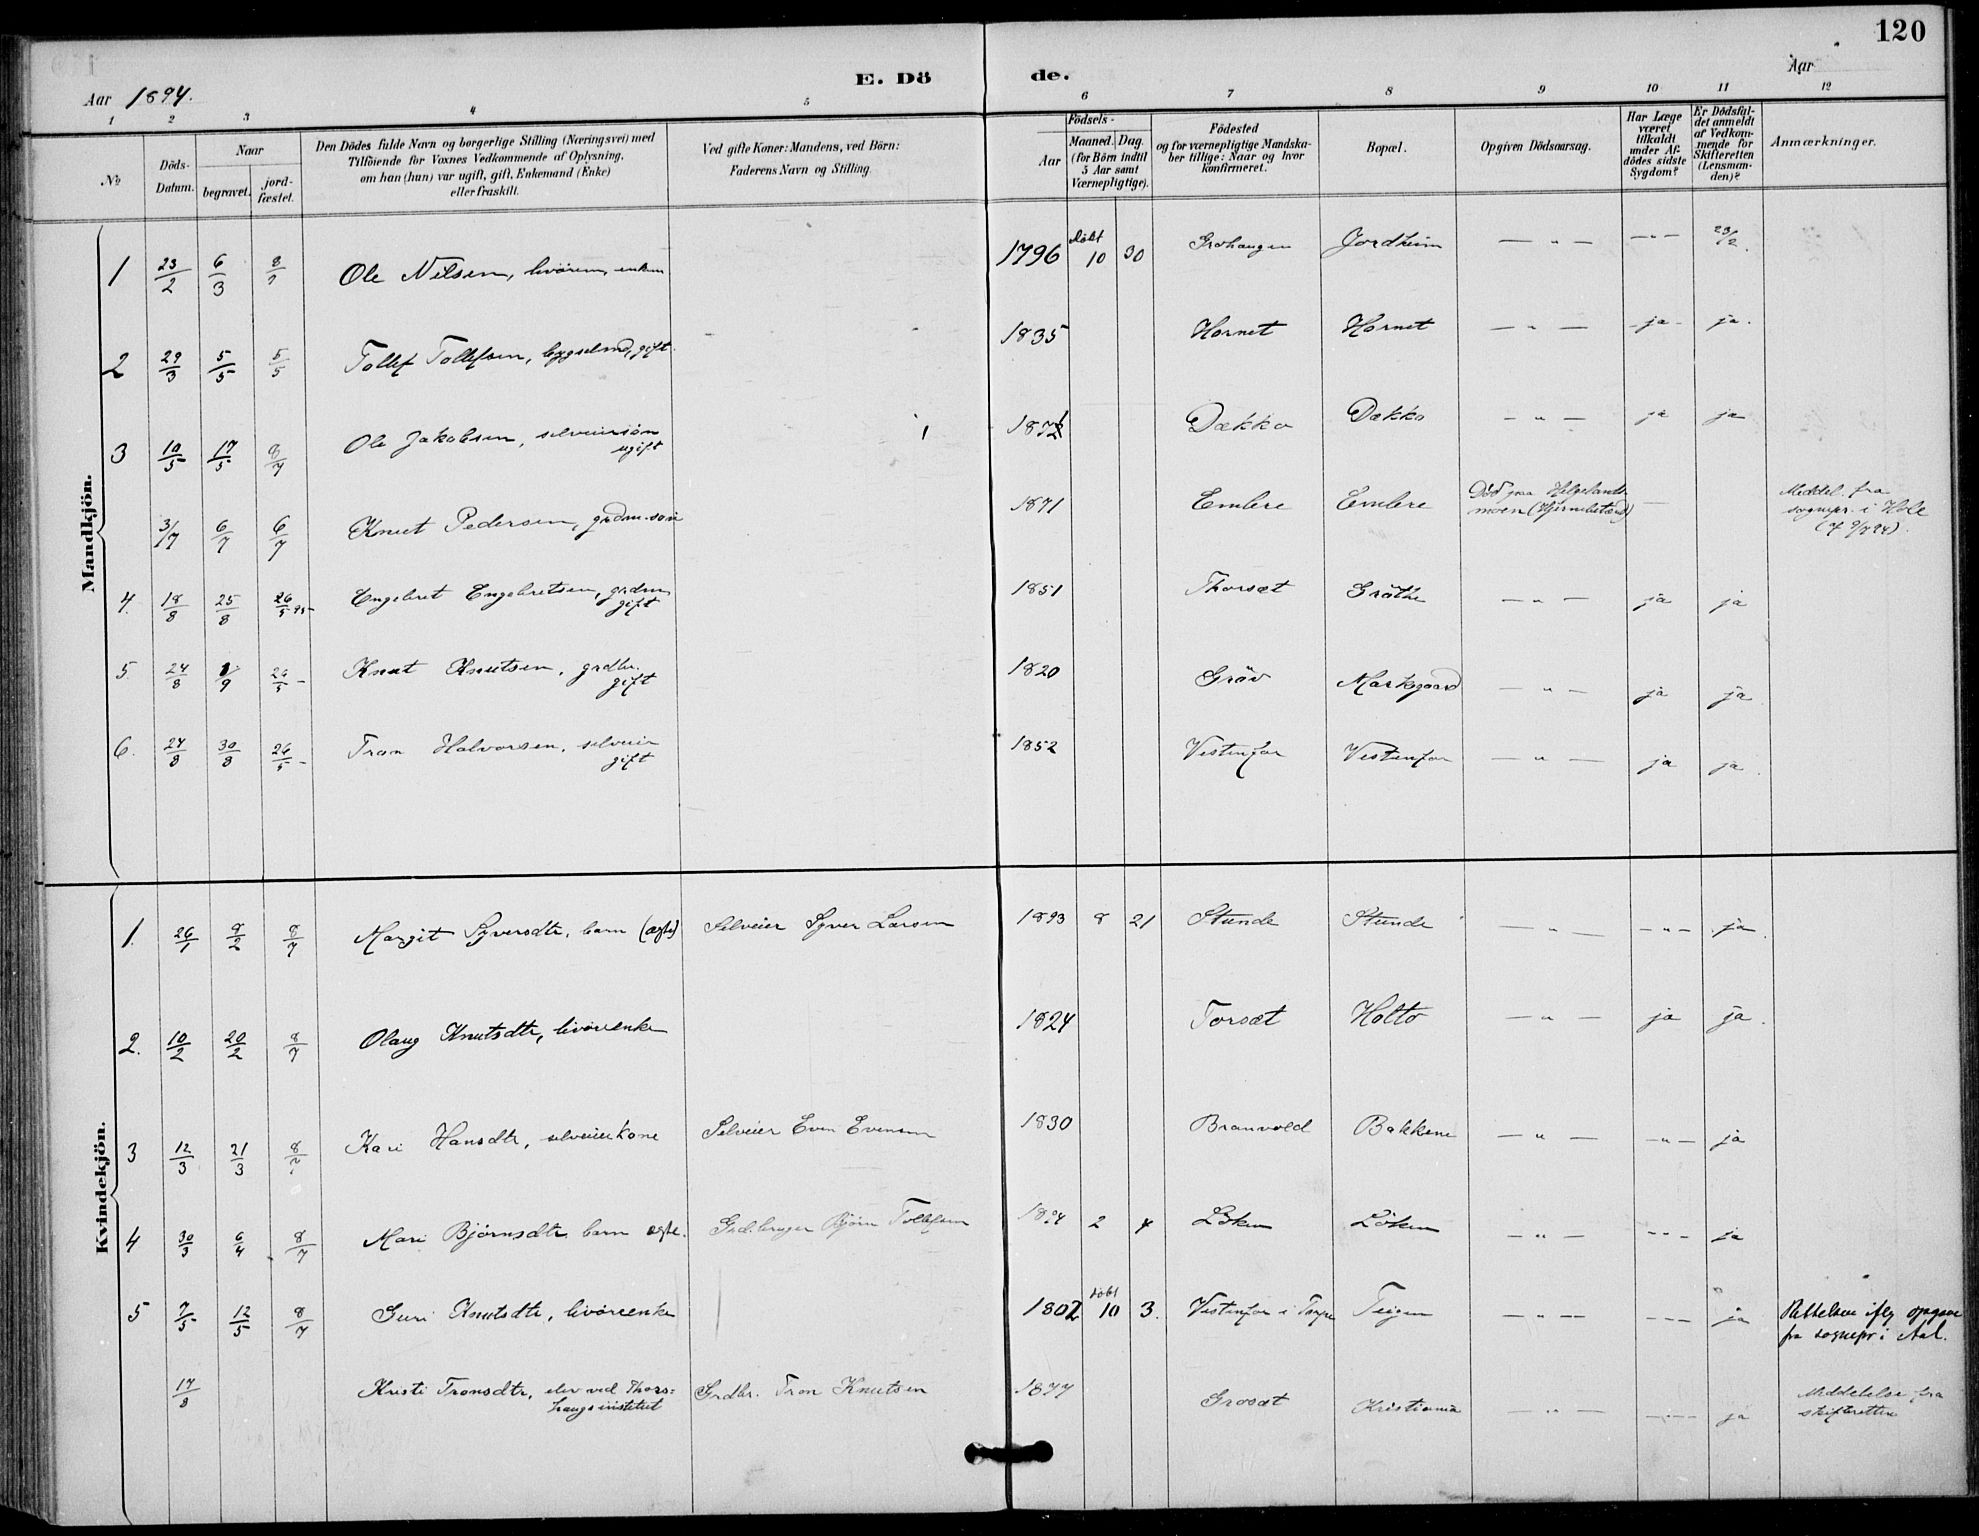 120
E. Dö de.
Aar 1894. Aar
1 2 3 4 5 6 7 8 9 10 11 12
No
Döds-Datum.
Naar
begravet.
jord-fæstet.
Den Dödes fulde Navn og borgerlige Stilling (Næringsvei) med
Tilföiende for Voxnes Vedkommende af Oplysning,
om han (hun) var ugift, gift, Enkemand (Enke)
eller fraskilt.
Ved gifte Koner: Mandens, ved Börn:
Faderens Navn og Stilling.
Födsels-
Aar
Maaned. Dag.
(for Börn indtil
5 Aar samt
Værnepligtige).
Födested
og for værnepligtige Mandska-
ber tillige: Naar og hvor
konfirmeret.
Bopæl.
Opgiven Dödsaarsag.
Har Læge
været
tilkaldt
under Af-
dödes sidste
Sygdom?
Er Dödsfal-
det anmeldt
af Vedkom-
mende for
Skifteretten
(Lensman-
den)?
Anmærkninger.
Mandkjön.
1 23/2 6/3 8/7 Ole Nilsen, 1796 døbt 10 30 Grohaugen Jordheim — „ — — „ — 23/2
2 29/3 5/5 5/5 Tollef Tollefsen, bygselmd, gift. 1835 Hornet Hornet — „ — ja ja.
3 10/5 17/5 8/7 Ole Jakobsen, selveiersøn ugift Dekko Dekko — „ — ja ja
3/7 6/7 6/7 Knut Pedersen, grdm.søn 1871 Emlere Emlere Død paa Helgelands-
moen (Hjernebetænd) — Meddel. fra
sognepr. i Hole
4. 18/8 25/8 26/5 95 Engebret Engebretsen, grdm. gift 1851 Thorsæt Grøthe — „ — ja ja
5. 24/8 1/9 26/5 – Knut Knutsen, grdbr. gift 1820 Gröv Markegaard — „ — ja ja
6. 24/8 30/8 26/5 – Tron Halvorsen, selveier gift 1852 Vestenfor Vestenfor — „ — ja ja.
Kvindekjön.
1. 26/1 8/2 8/7 Margit Syversdtr, barn (ægte) Selveier Syver Larsen 1893 8 21 Stunde Stunde — „ — — „ — ja.
2. 10/2 20/2 8/7 Olaug Knutsdtr, livøreenke 1824 Torsæt Holto — „ — ja ja.
3 12/3 21/3 8/7 Kari Hansdtr, selveierkone Selveier Even Evensen 1830 Branvold Bakkene — „ — — „ — ja
4 30/3 6/4 8/7 Mari Bjørnsdtr barn ægte. Grd.bruger Bjørn Tollefsen 1894 2 4 Löken Löken — „ — — „ — ja
5 7/5 12/5 8/7 Guri Knutsdtr, livøreenke 1802 døbt 10 3. Vestenfor i Torpe Teigen — „ — — „ — ja Rettelsen iflg opgave
fra sognepr i Aal.
17/8 Kristi Tronsdtr, elev ved Thors-
haugs institut Grdbr. Tron Knutsen 1877 Grosæt Kristiania — „ — — „ — ja Meddelelse fra
skifteretten